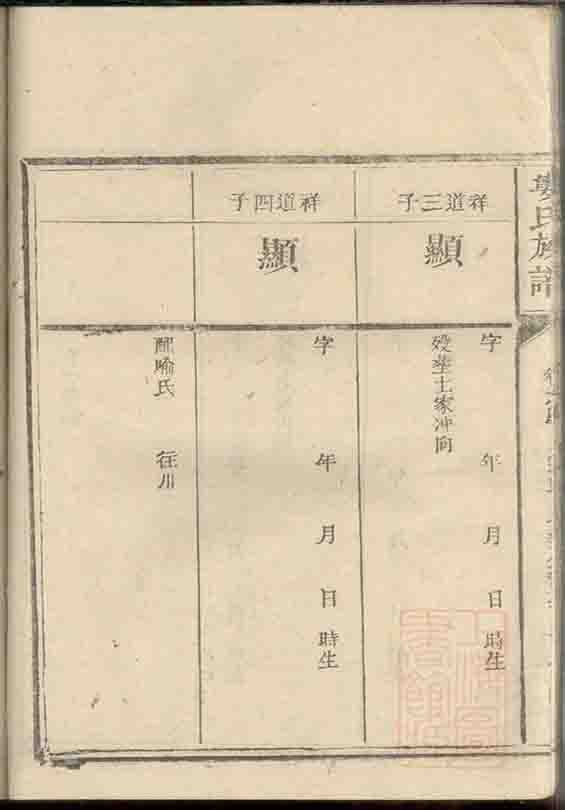 婁氏族譜
祥道三子
顯
字 年 月 日 時生
歿塟土家冲向
祥道四子
顯
字 年 月 日 時生
配喻氏 往川